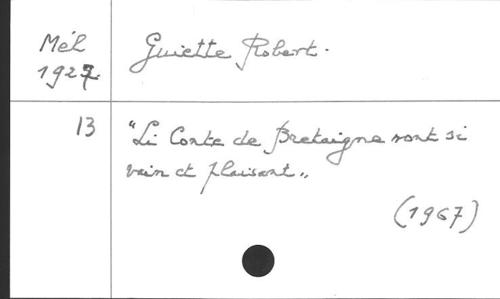 Mél
1927
Guiette Robert.
13
"Li Conte de Bretaigne sont si
vain et plaisant„
(1967)